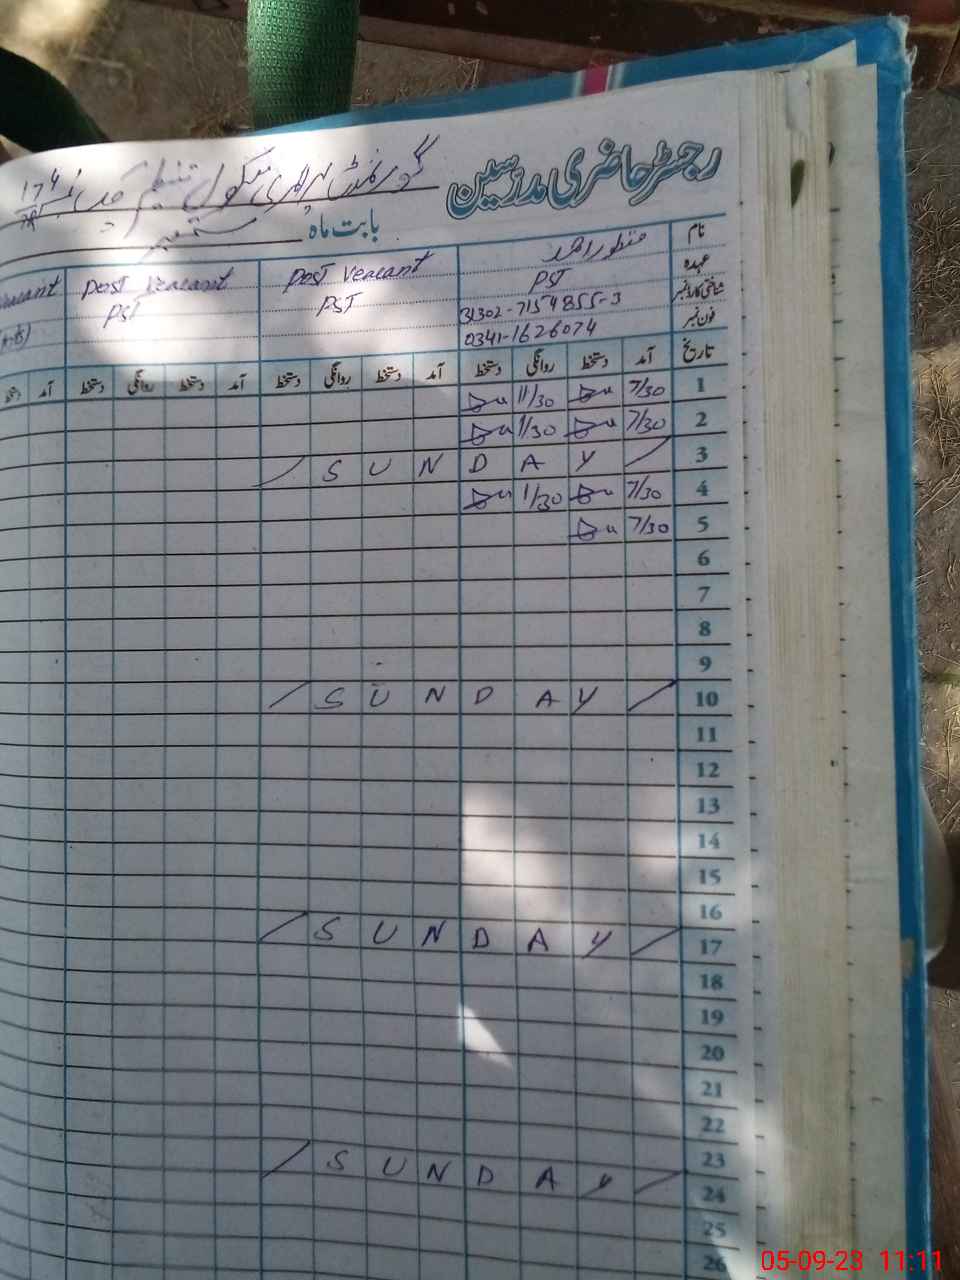 رجسٹر حاضری مدرسین گورنمنٹ پرائمری سکول
بابت ماہ ستمبر
نام منظور احمد Post Veacant Post Veacant
عہدہ PST PST PST
شناختی کارڈ نمبر 31302-7154855-3
فون نمبر 0341-1626074
تاریخ آمد دستخط روانگی دستخط آمد دستخط روانگی دستخط آمد دستخط روانگی دستخط آمد دستخط
1 7/30 11/30
2 7/30 1/30
3 SUNDAY
4 7/30 1/30
5 7/30
6
7
8
9
10 SUNDAY
11
12
13
14
15
16
17 SUNDAY
18
19
20
21
22
23
24 SUNDAY
25
26
05-09-23 11:11